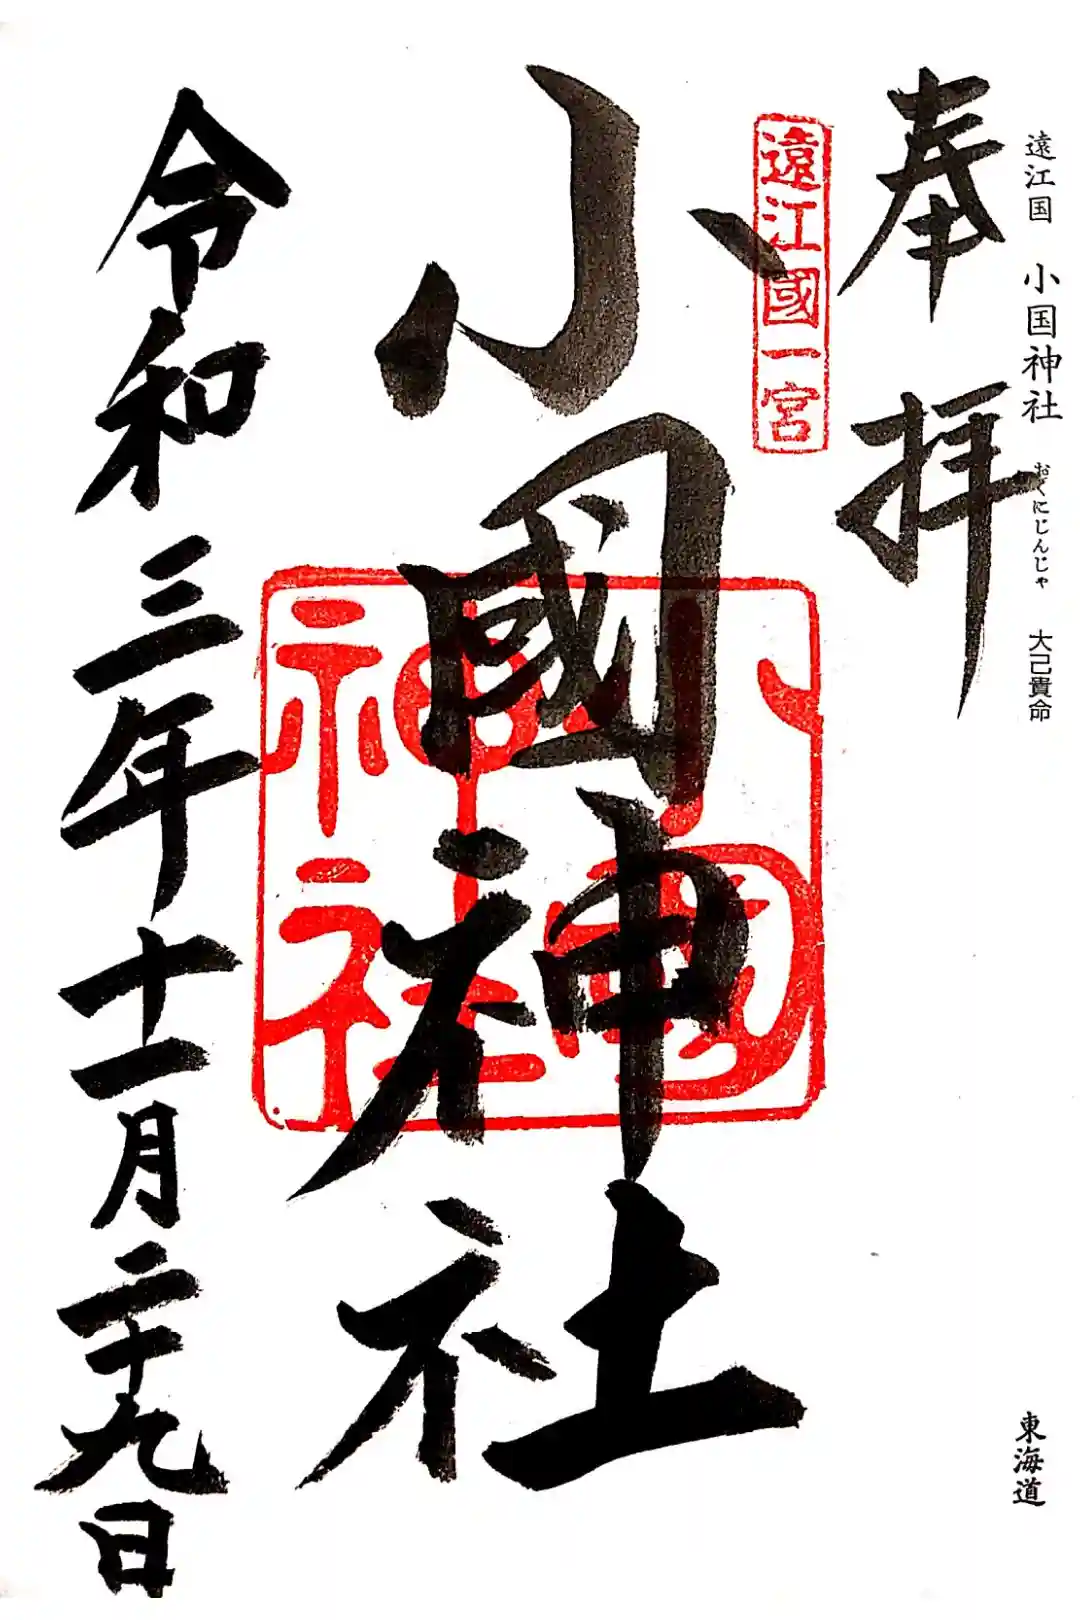 遠江国 小国神社 おくにじんじゃ 大己貴命
東海道
奉拝
遠江國一宮
小國神社
小國神社
令和三年十一月二十九日